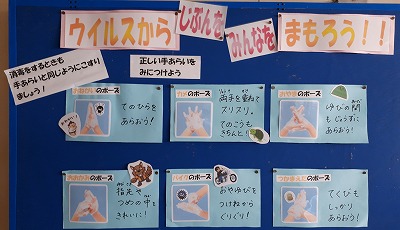 ウイルスから
じぶんを
みんなを
まもろう！！
消毒をするときも
手あらいと同じようにこすり
ましょう！
正しい手あらいを
みにつけよう
おねがいのポーズ
てのひらを
あらおう！
カメのポーズ
両手を重ねて
スリスリ。
てのこうも
きちんと！
おやまのポーズ
ゆびの間
もじょうずに
あらおう！
おおかみのポーズ
指先や
つめの中も
きれいに！
バイクのポーズ
おやゆびを
つけねから
ぐりぐり！
つかまえたのポーズ
てくびも
しっかり
あらおう！